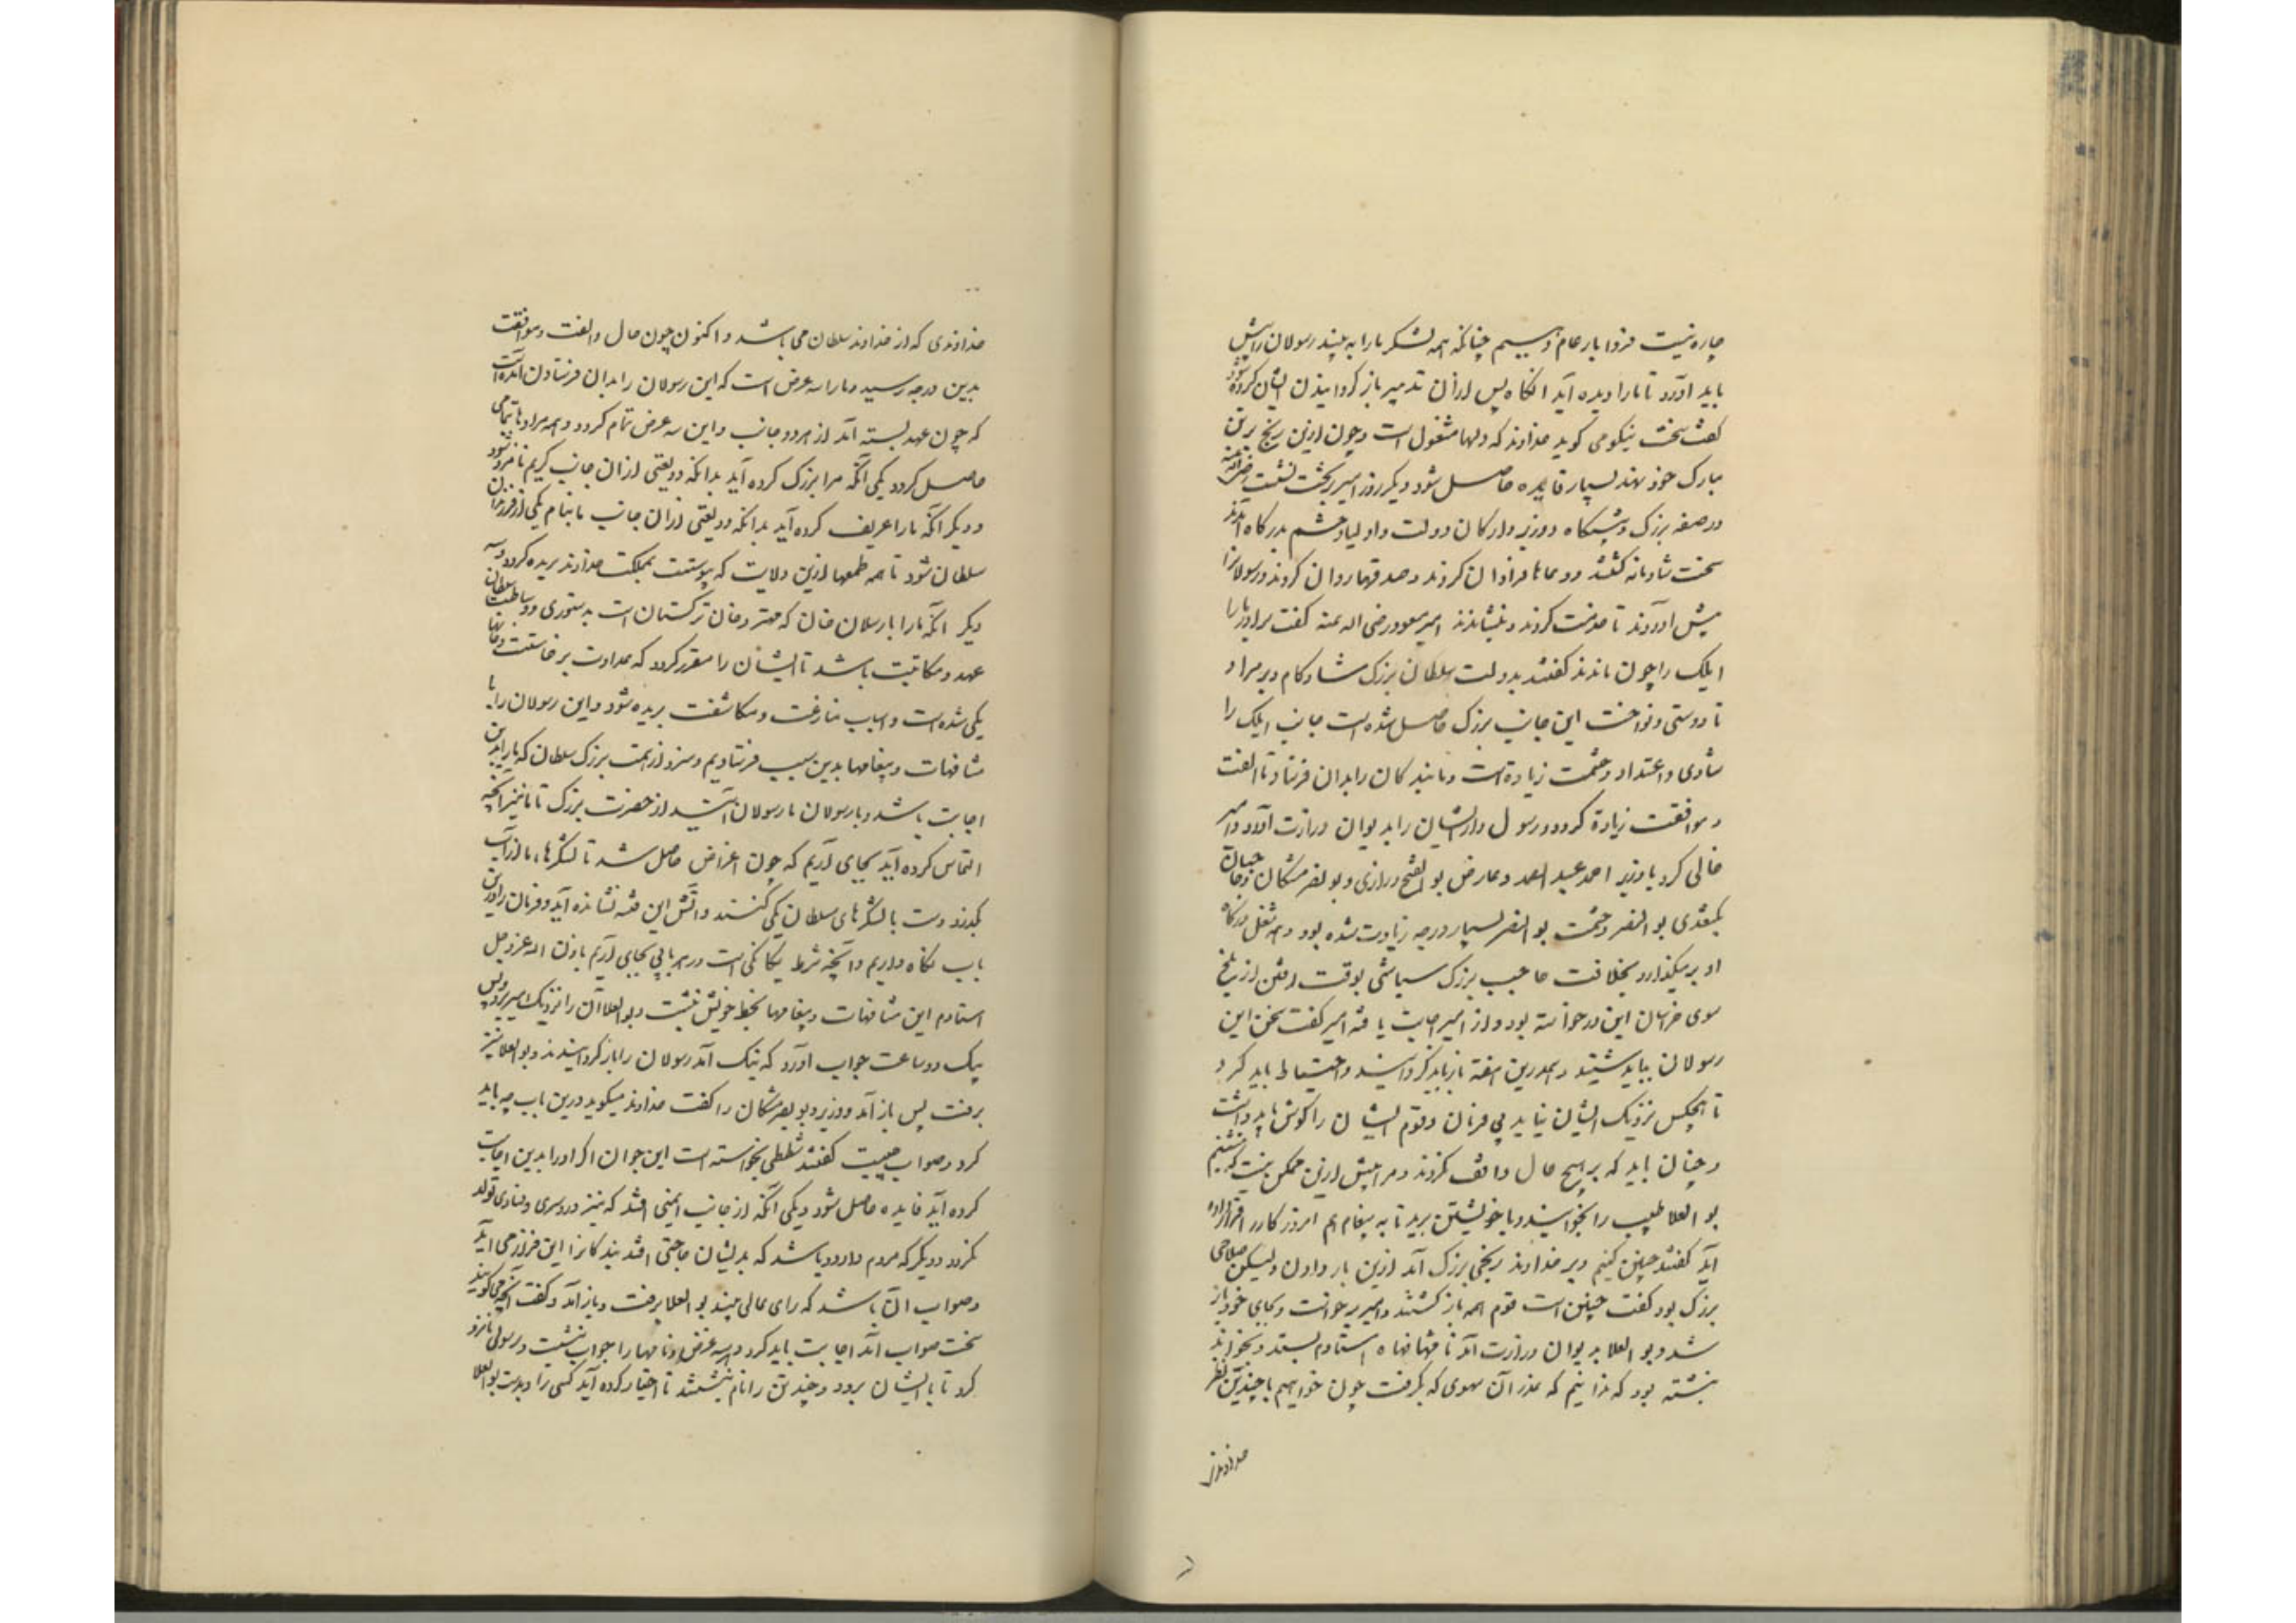 چاره نیست فردا بار عام دهیم چنانکه همه لشکر ما را به بینند رسولان را پیش
باید آورد تا ما را دیده آید آنگاه پس ازان تدبیر باز گردانیدن ایشان کرده شود
گفت سخت نیکو می گوید خداوند که دلها مشغول است و چون ازین رنج بر تن
مبارک خود نهند بسیار فایده حاصل شود دیگر روز امیر بر تخت نشست رضی الله عنه
در صفه بزرگ و پیشگاه و وزیر و ارکان دولت و اولیا و حشم بدرگاه آمدند
سخت شادمانه گشتند و دعاها فراوان کردند و صدقها روان کردند و رسولانرا
پیش آوردند تا خدمت کردند و بنشاندند امیر مسعود رضی الله عنه گفت برادر ما را
ایلک را چون ماندند گفتند بدولت سلطان بزرگ شاد کام و بر مراد
تا دوستی و نواخت این جانب بزرگ حاصل شده است جانب ایلک را
شادی و اعتداد و حشمت زیادة است و ما بندگان را بدان فرستاد تا الفت
و موافقت زیادة گردد و رسول دار ایشان را بدیوان وزارت آورد و امیر
خالی کرد با وزیر احمد عبد الصمد و عارض بو الفتح رازی و بو نصر مشکان و حاجبان
بکتغدی بو النصر و حشمت بو النصر بسیار درجه زیادت شده بود و همه شغل درگاه
او بر میگذارد بخلافت حاجب بزرگ سباشی بوقت رفتن از بلخ
سوی خراسان این درخواسته بود و از امیر اجابت یافته امیر گفت سخن این
رسولان بباید شنید و هم درین هفته باز باید گردانید و احتیاط باید کرد
تا هیچکس نزدیک ایشان نیاید بی فرمان و قوم ایشان را گوش باید داشت
و چنان باید که بر هیچ حال واقف نگردند و مرا بیش ازین ممکن نیست که بنشینم
بو العلا طبیب را بخوانید و با خویشتن برید تا به پیغام هم امروز کار را قرار داده
آید گفتند چنین کنیم و بر خداوند رنجی بزرگ آمد ازین بار دادن ولیکن صلاحی
بزرگ بود گفت چنین است قوم همه باز گشتند و امیر برخاست و بجای خود باز
شد و بو العلا بدیوان وزارت آمد نامها و مشافهاه استادم بستد و بخواند
نبشته بود که ما دانیم که عذر آن سهوی که برفت چون خواهیم با چندین نظر
خداوندی
خداوندی که از خداوند سلطان می باشد و اکنون چون حال و الفت و موافقت
بدین درجه رسید و ما را سه غرض است که این رسولان را بدان فرستادن آمده است
که چون عهد بسته آمد از هر دو جانب و این سه غرض تمام گردد و همه مرادها بتمامی
حاصل گردد یکی آنکه مرا بزرگ کرده آید بدانکه ودیعتی ازان جانب کریم نامزد شود
و دیگر آنکه ما را عریف کرده آید بدانکه ودیعتی ازان جانب ما بنام یکی از فرزندان
سلطان شود تا همه طمعها ازین ولایت که پیوست بمملکت خداوند بریده گردد و سه
دیگر آنکه ما را با ارسلان خان که مهتر و خان ترکستان است بدستوری و وساطت سلطان
عهد و مکاتبت باشد تا ایشان را مقرر گردد که عداوت برخاست و خانها
یکی شده است و اسباب منازعت و مکاشفت بریده شود و این رسولان را با
مشافهات و پیغامها بدین سبب فرستادیم و سزد از همت بزرگ سلطان که ما را بدین
اجابت باشد و با رسولان ما رسولان آیند از حضرت بزرگ تا ما نیز آنچه
التماس کرده آید بجای آریم که چون اغراض حاصل شد تا لشکرها ما از آب
بگذرد و دست با لشکرهای سلطان یکی کنند و آتش این فتنه نشانده آید و فرمان را درین
باب نگاه داریم و آنچه شرط یگانگی است در هر بابی بجای آریم باذن الله عز و جل
استادم این مشافهات و پیغامها بخط خویش نبشت و بو العلا آن را نزدیک امیر برد و پس
بیک دو ساعت جواب آورد که نیک آمد رسولان را باز گردانیدند و بو العلا نیز
برفت پس باز آمد و وزیر و بو نصر مشکان را گفت خداوند میگوید درین باب چه باید
کرد و صواب چیست گفتند شططی نخواسته است این جوان اگر او را بدین اجابت
کرده آید فایده حاصل شود و یکی آنکه از جانب ایمنی افتد که نیز دردسری و فسادی تولد
نگردد و دیگر که مردم دارد و باشد که بدیشان حاجتی افتد بندگانرا این فراز می آید
و صواب آن باشد که رای عالی بیند بو العلا برفت و باز آمد و گفت آنچه می گویید
سخت صواب آمد اجابت باید کرد و هر سه غرض و نامها را جواب نبشت و رسولی نامزد
کرد تا با ایشان برود و چند تن را نام نبشتند تا اختیار کرده آید کسی را و بدست بو العلا